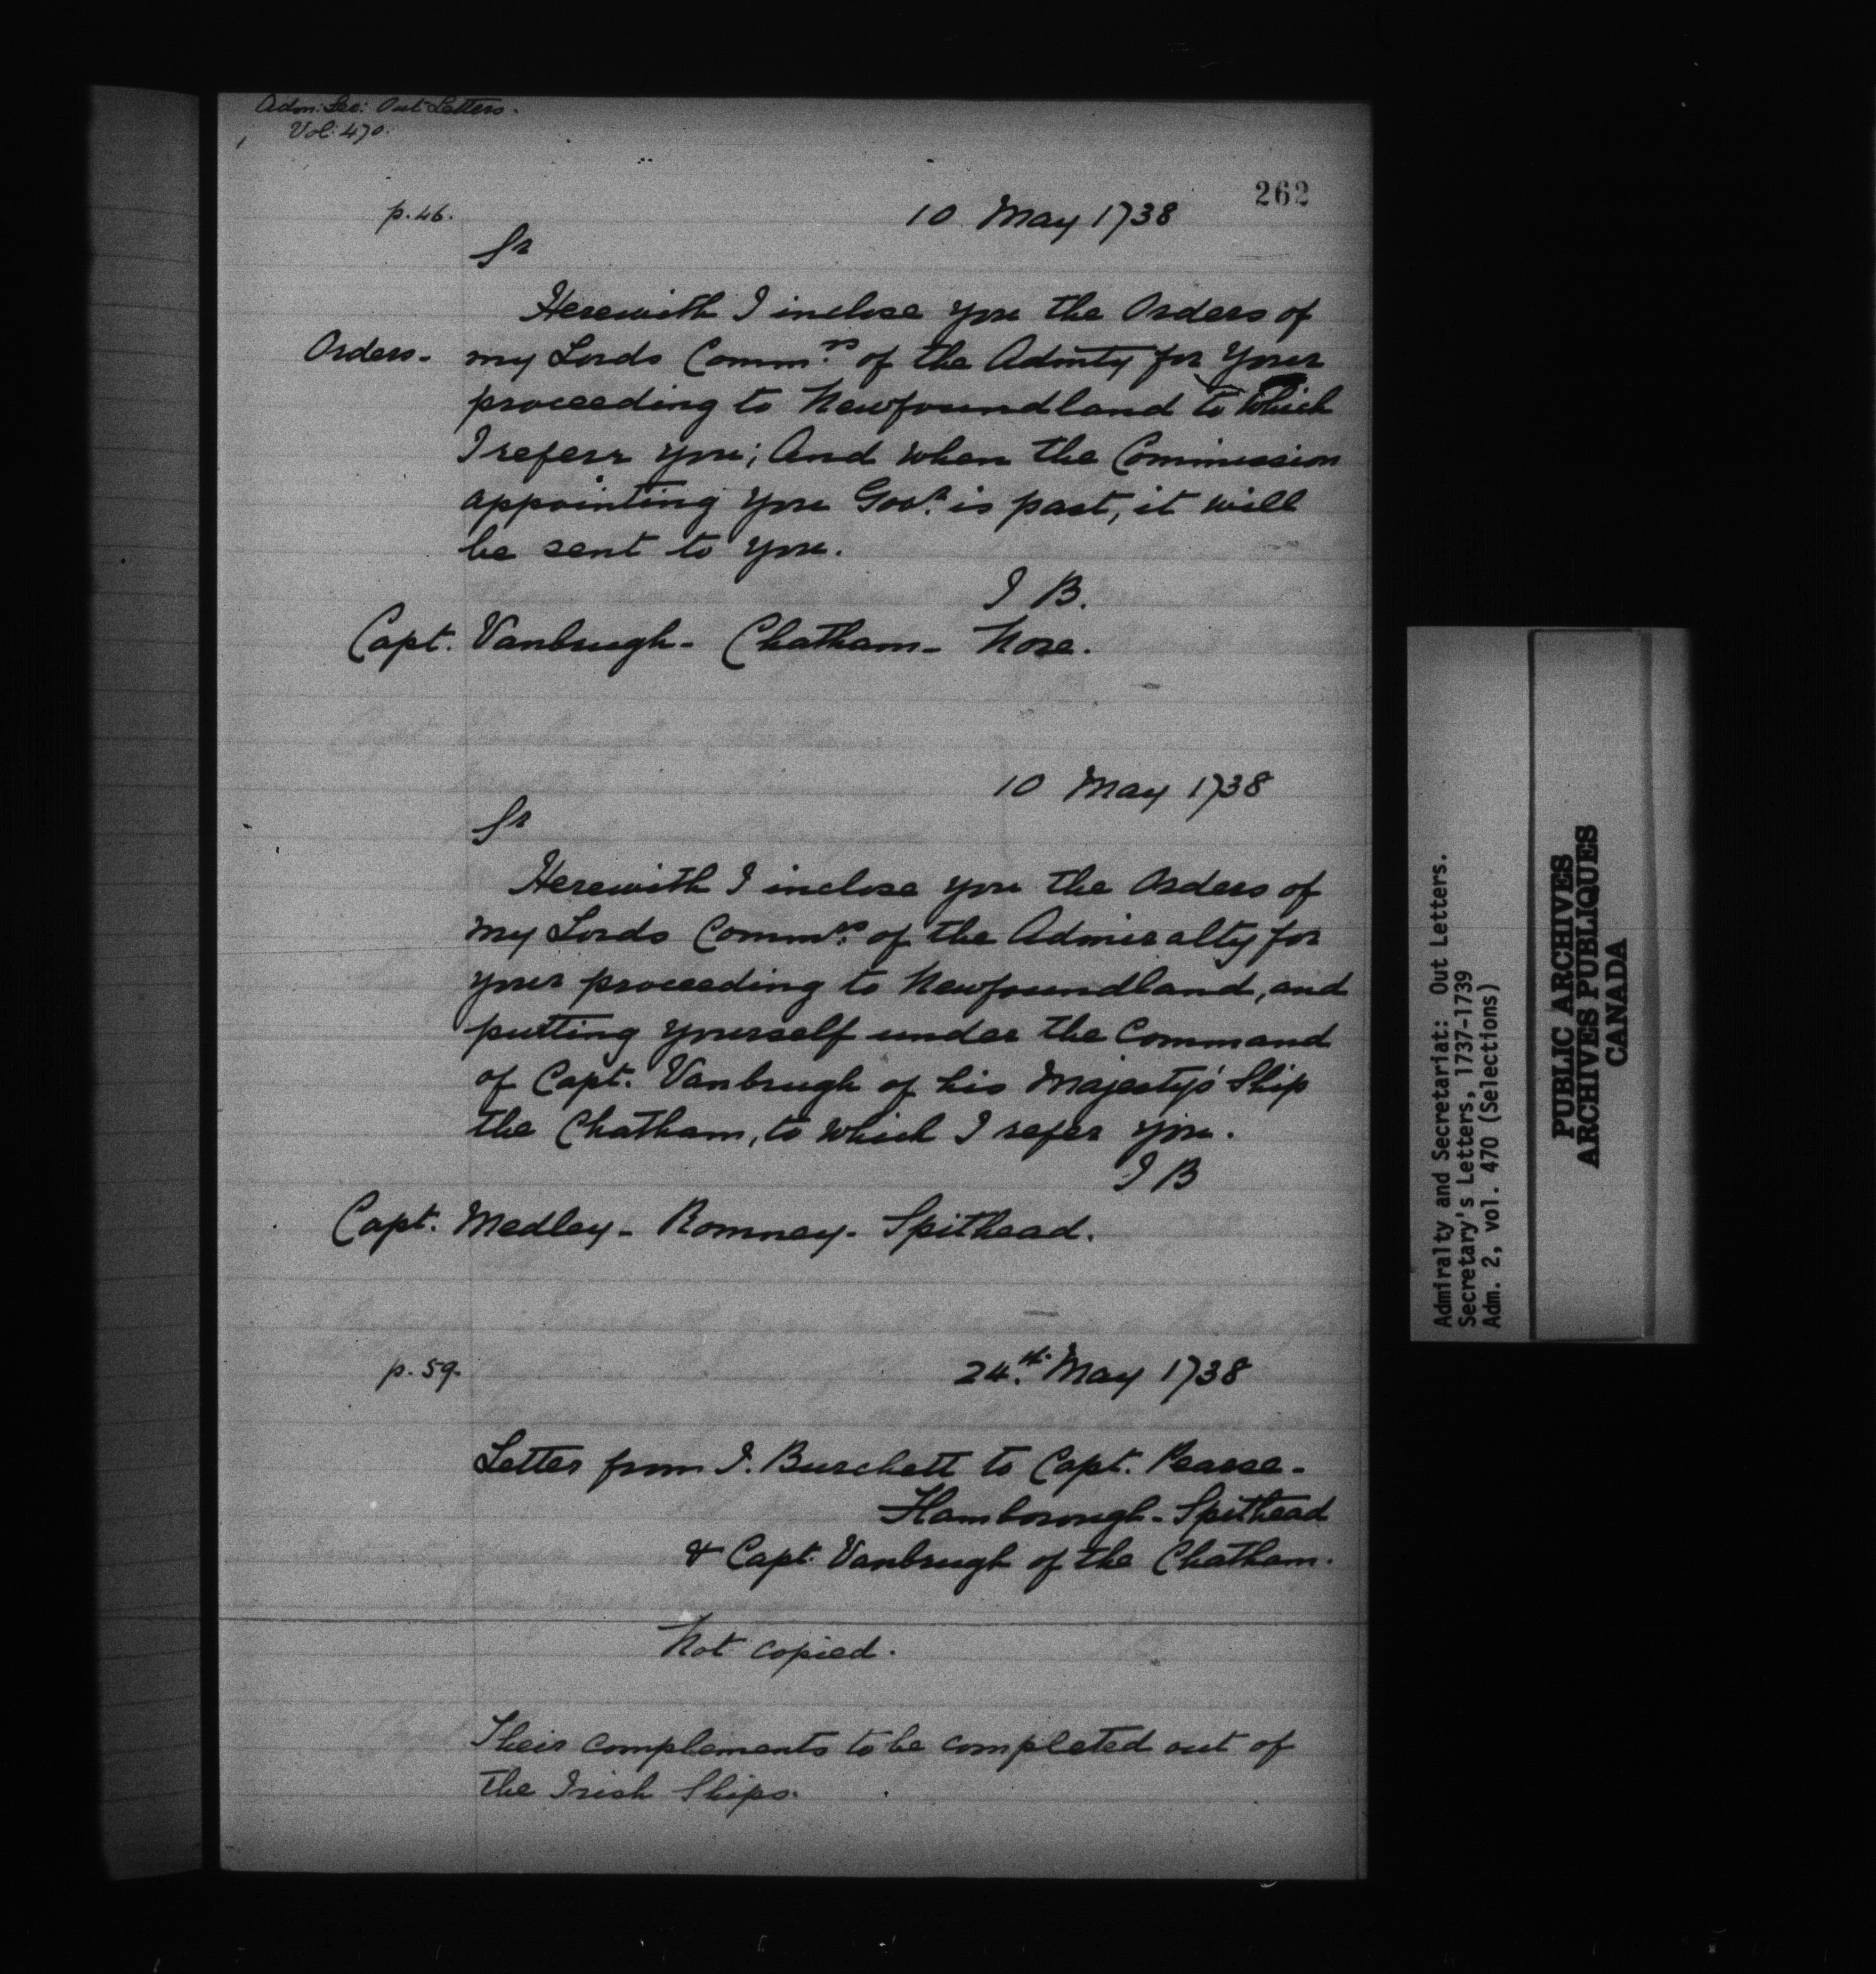 Adm: Sec: Out Letters.
Vol: 470.
262
p. 46.
10 May 1738
Sr
Herewith I inclose you the Orders of
Orders- my Lords Commrs. of the Admty for Your
proceeding to Newfoundland to which
I referr you; And when the Commission
appointing you Govr. is past, it will
be sent to you.
I B.
Capt. Vanbrugh- Chatham- Nore.
10 May 1738
Sr
Herewith I inclose you the Orders of
my Lords Commrs. of the Admiralty for
your proceeding to Newfoundland, and
putting yourself under the Command
of Capt. Vanbrugh of his Majesty's Ship
the Chatham, to which I refer you.
I B
Capt. Medley- Romney- Spithead.
p. 59.
24th. May 1738
Letter from I. Burchett to Capt. Pearse-
Flamborough- Spithead
& Capt. Vanbrugh of the Chatham.
Not copied.
Their complements to be completed out of
the Irish Ships.
Admiralty and Secretariat: Out Letters.
Secretary's Letters, 1737-1739
Adm. 2, vol. 470 (Selections)
PUBLIC ARCHIVES
ARCHIVES PUBLIQUES
CANADA